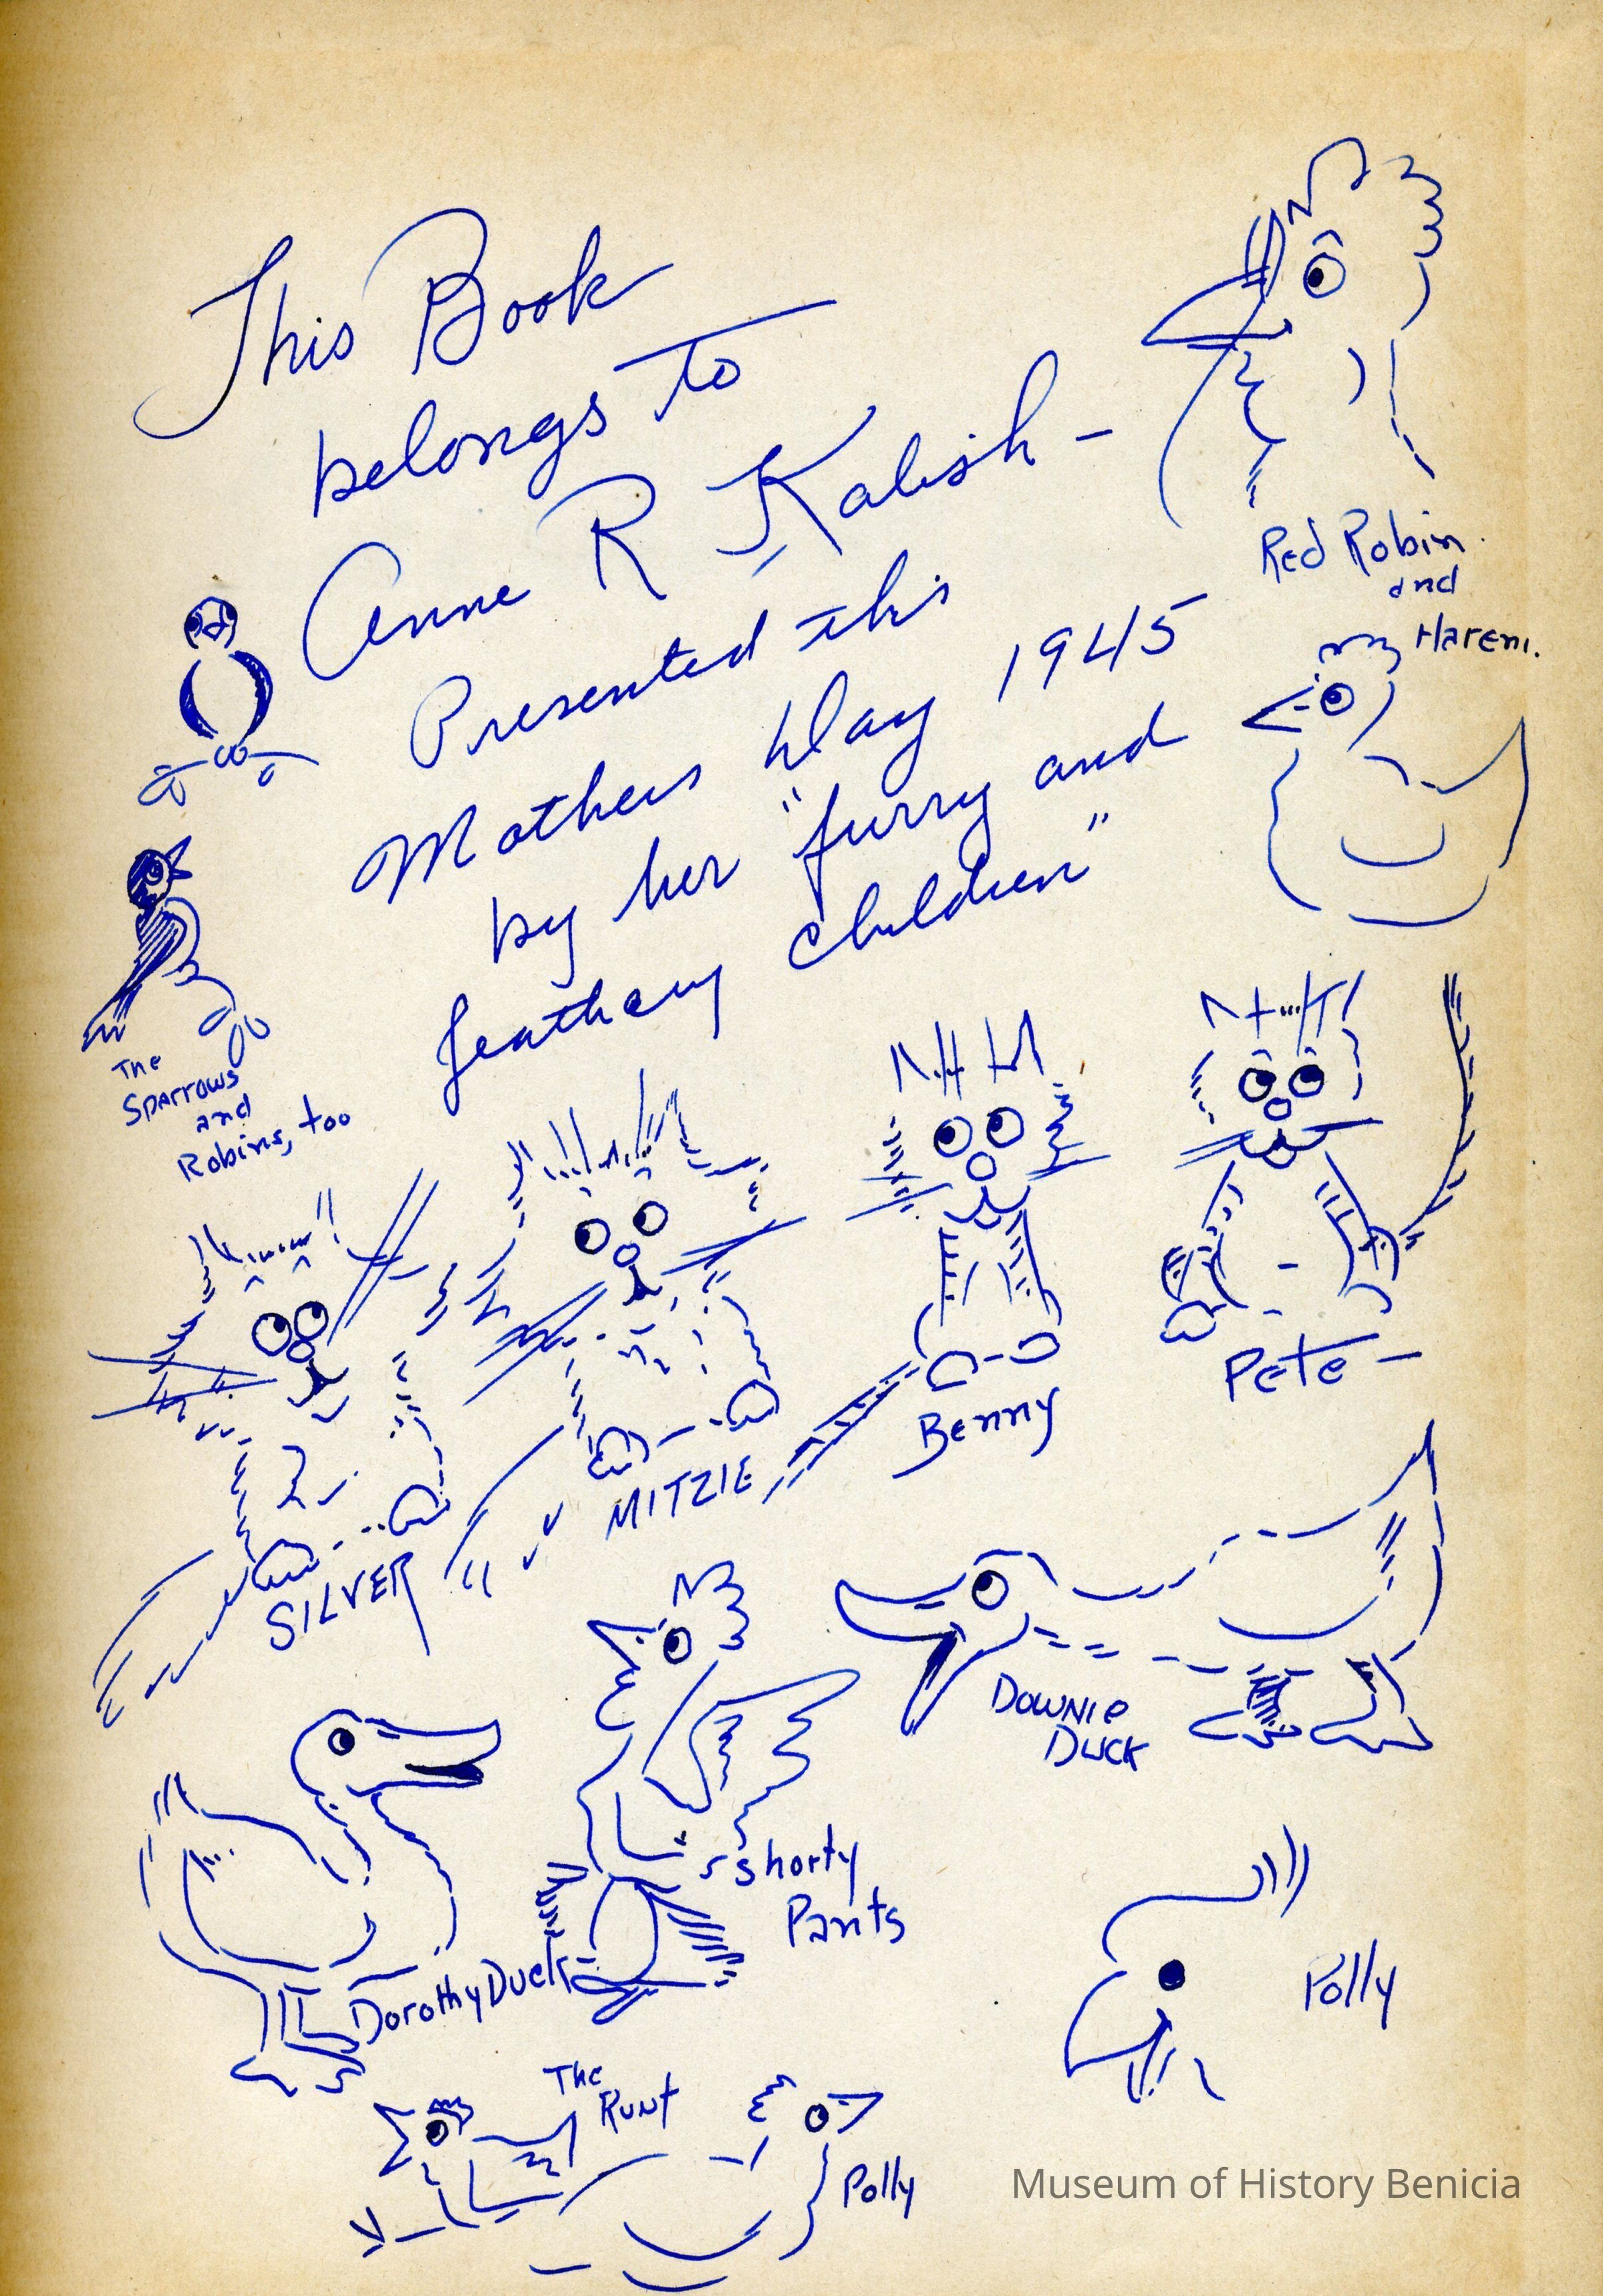 This Book
belongs to
Anne R Kalish –
Presented this
Mothers Day 1945
by her "furry and
feathery children"
Red Robin
and
Harem.
The
Sparrows
and
Robins, too
Pete –
Benny
MITZIE
SILVER
Downie
Duck
Shorty
Pants
Dorothy Duck
Polly
The
Runt
Polly
Museum of History Benicia